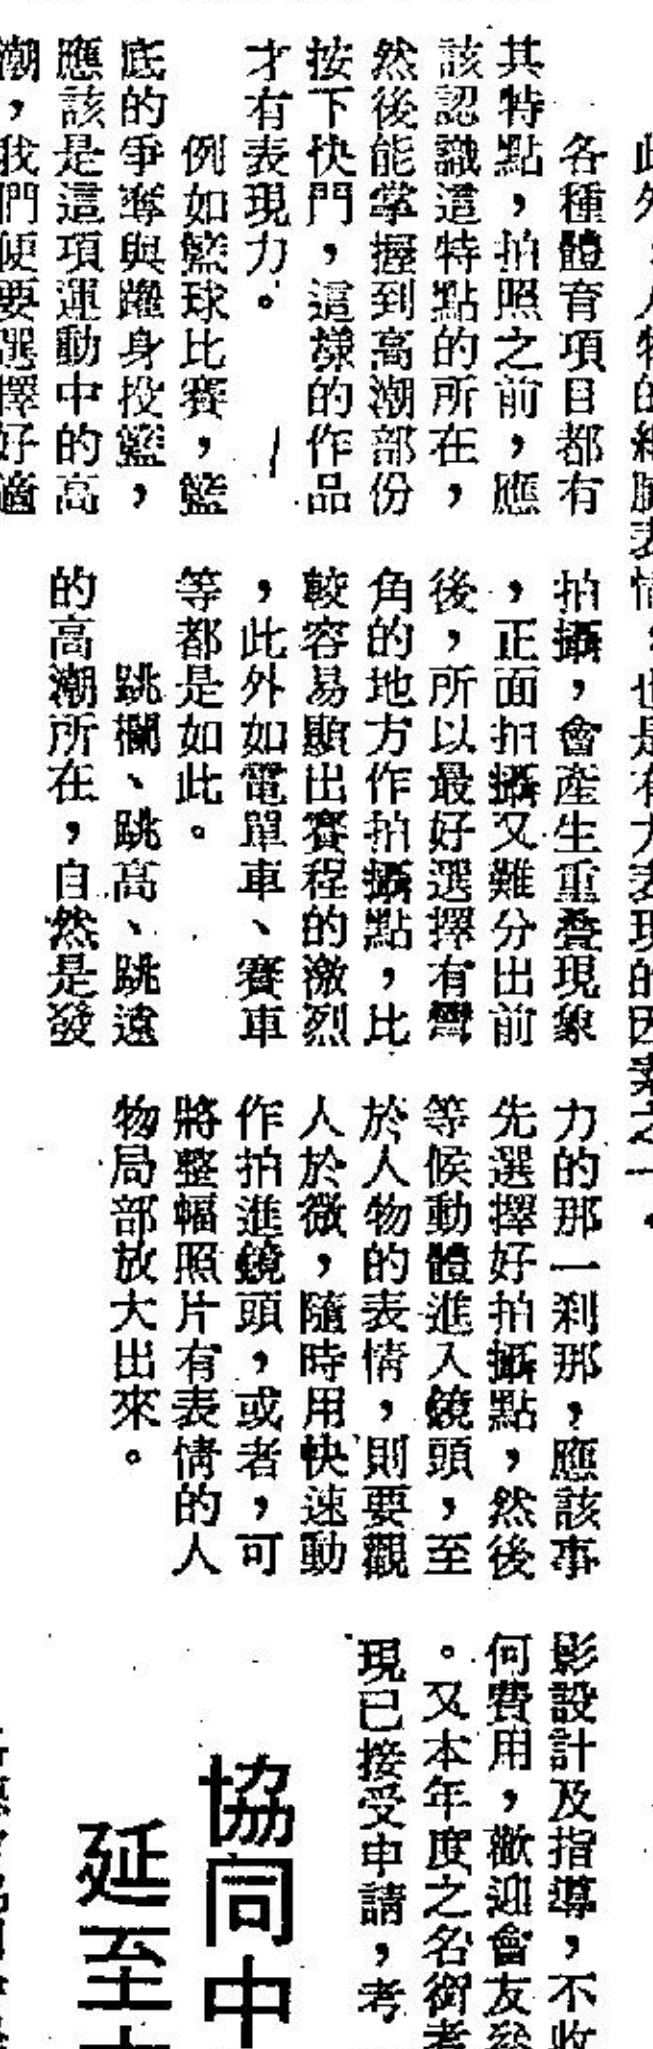 此外，人物的
表情，也是有力表現的因素之一。
各種體育項目都有
其特點，拍照之前，應
該認識這特點的所在，
然後能掌握到高潮部份
按下快門，這樣的作品
才有表現力。
例如籃球比賽，籃
底的爭奪與躍身投籃，
應該是這項運動中的高
潮，我們便要選擇好適
拍攝，會產生重疊現象
，正面拍攝又難分出前
後，所以最好選擇有彎
角的地方作拍攝點，比
較容易顯出賽程的激烈
，此外如電單車、賽車
等都是如此。
跳欄、跳高、跳遠
的高潮所在，自然是發
力的那一剎那，應該事
先選擇好拍攝點，然後
等候動體進入鏡頭，至
於人物的表情，則要觀
人於微，隨時用快速動
作拍進鏡頭，或者，可
將整幅照片有表情的人
物局部放大出來。
影設計及指導，不收
何費用，歡迎會友
。又本年度之名銜考
現已接受申請，考
協同中
延至